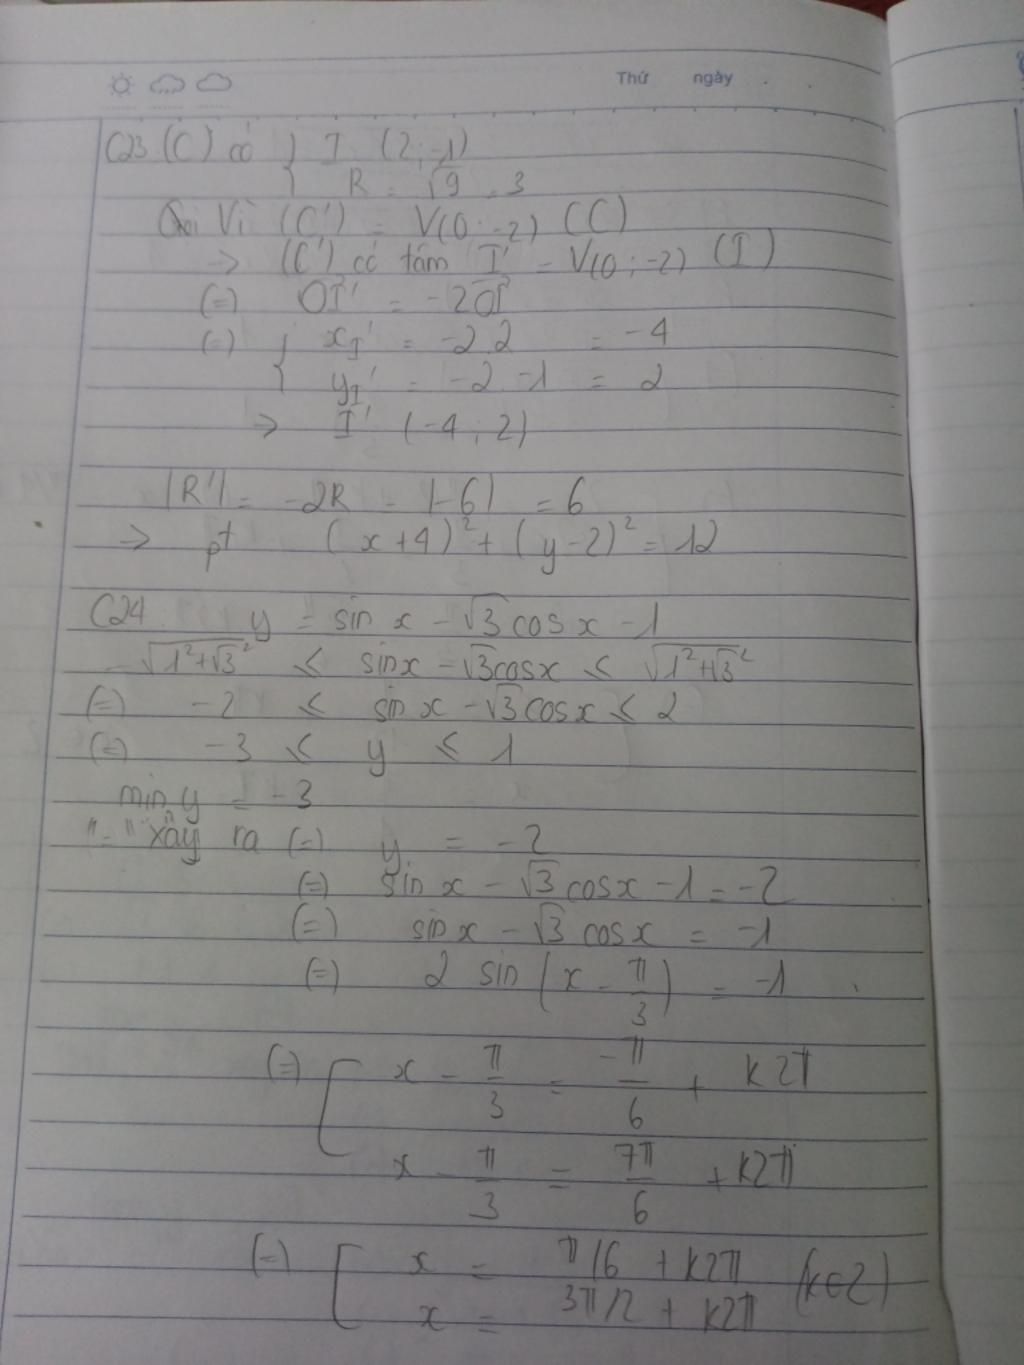 Thứ ngày
C23 (C) có { I (2; -1)
R = √9 = 3
Vì (C') = V(0; -2) (C)
→ (C') có tâm I' = V(0; -2) (I)
(=) OI' = -2OI
(=) { x_I' = -2.2 = -4
y_I' = -2.-1 = 2
=> I' (-4; 2)
|R'| = -2R = |-6| = 6
=> pt (x+4)² + (y-2)² = 12
C24. y = sin x - √3 cos x - 1
-√1²+√3² ≤ sinx - √3cosx ≤ √1²+√3²
(=) -2 ≤ sin x - √3 cosx ≤ 2
(=) -3 ≤ y ≤ 1
min y = -3
"=" xảy ra (=) y = -2
(=) sin x - √3 cosx - 1 = -2
(=) sin x - √3 cos x = -1
(=) 2 sin (x - π/3) = -1
(=) [ x - π/3 = -π/6 + k2π
x - π/3 = 7π/6 + k2π
(=) [ x = π/6 + k2π (k∈Z)
x = 3π/2 + k2π